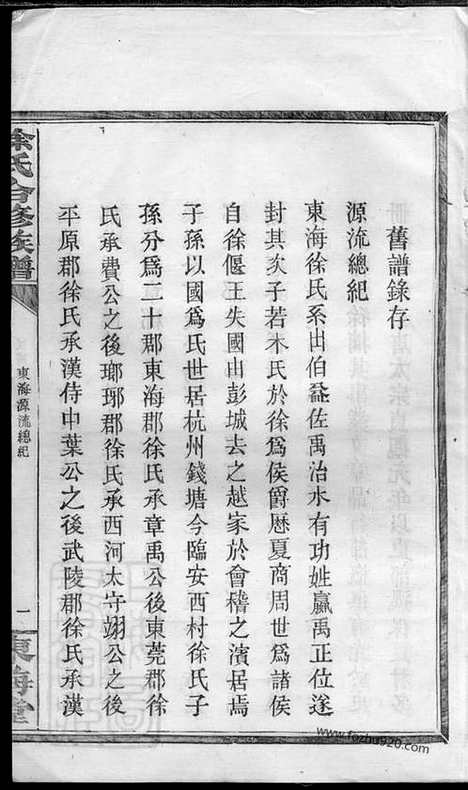 舊譜錄存
源流總紀
東海徐氏系出伯益佐禹治水有功姓嬴禹正位遂
封其次子若木氏於徐爲侯爵歷夏商周世爲諸侯
自徐偃王失國由彭城去之越家於會稽之濱居焉
子孫以國爲氏世居杭州錢塘今臨安西村徐氏子
孫分爲二十郡東海郡徐氏承章禹公後東莞郡徐
氏承費公之後瑯琊郡徐氏承西河太守翊公之後
平原郡徐氏承漢侍中葉公之後武陵郡徐氏承漢
徐氏合修族譜
東海源流總紀
一
東海堂
www.fozhu920.com